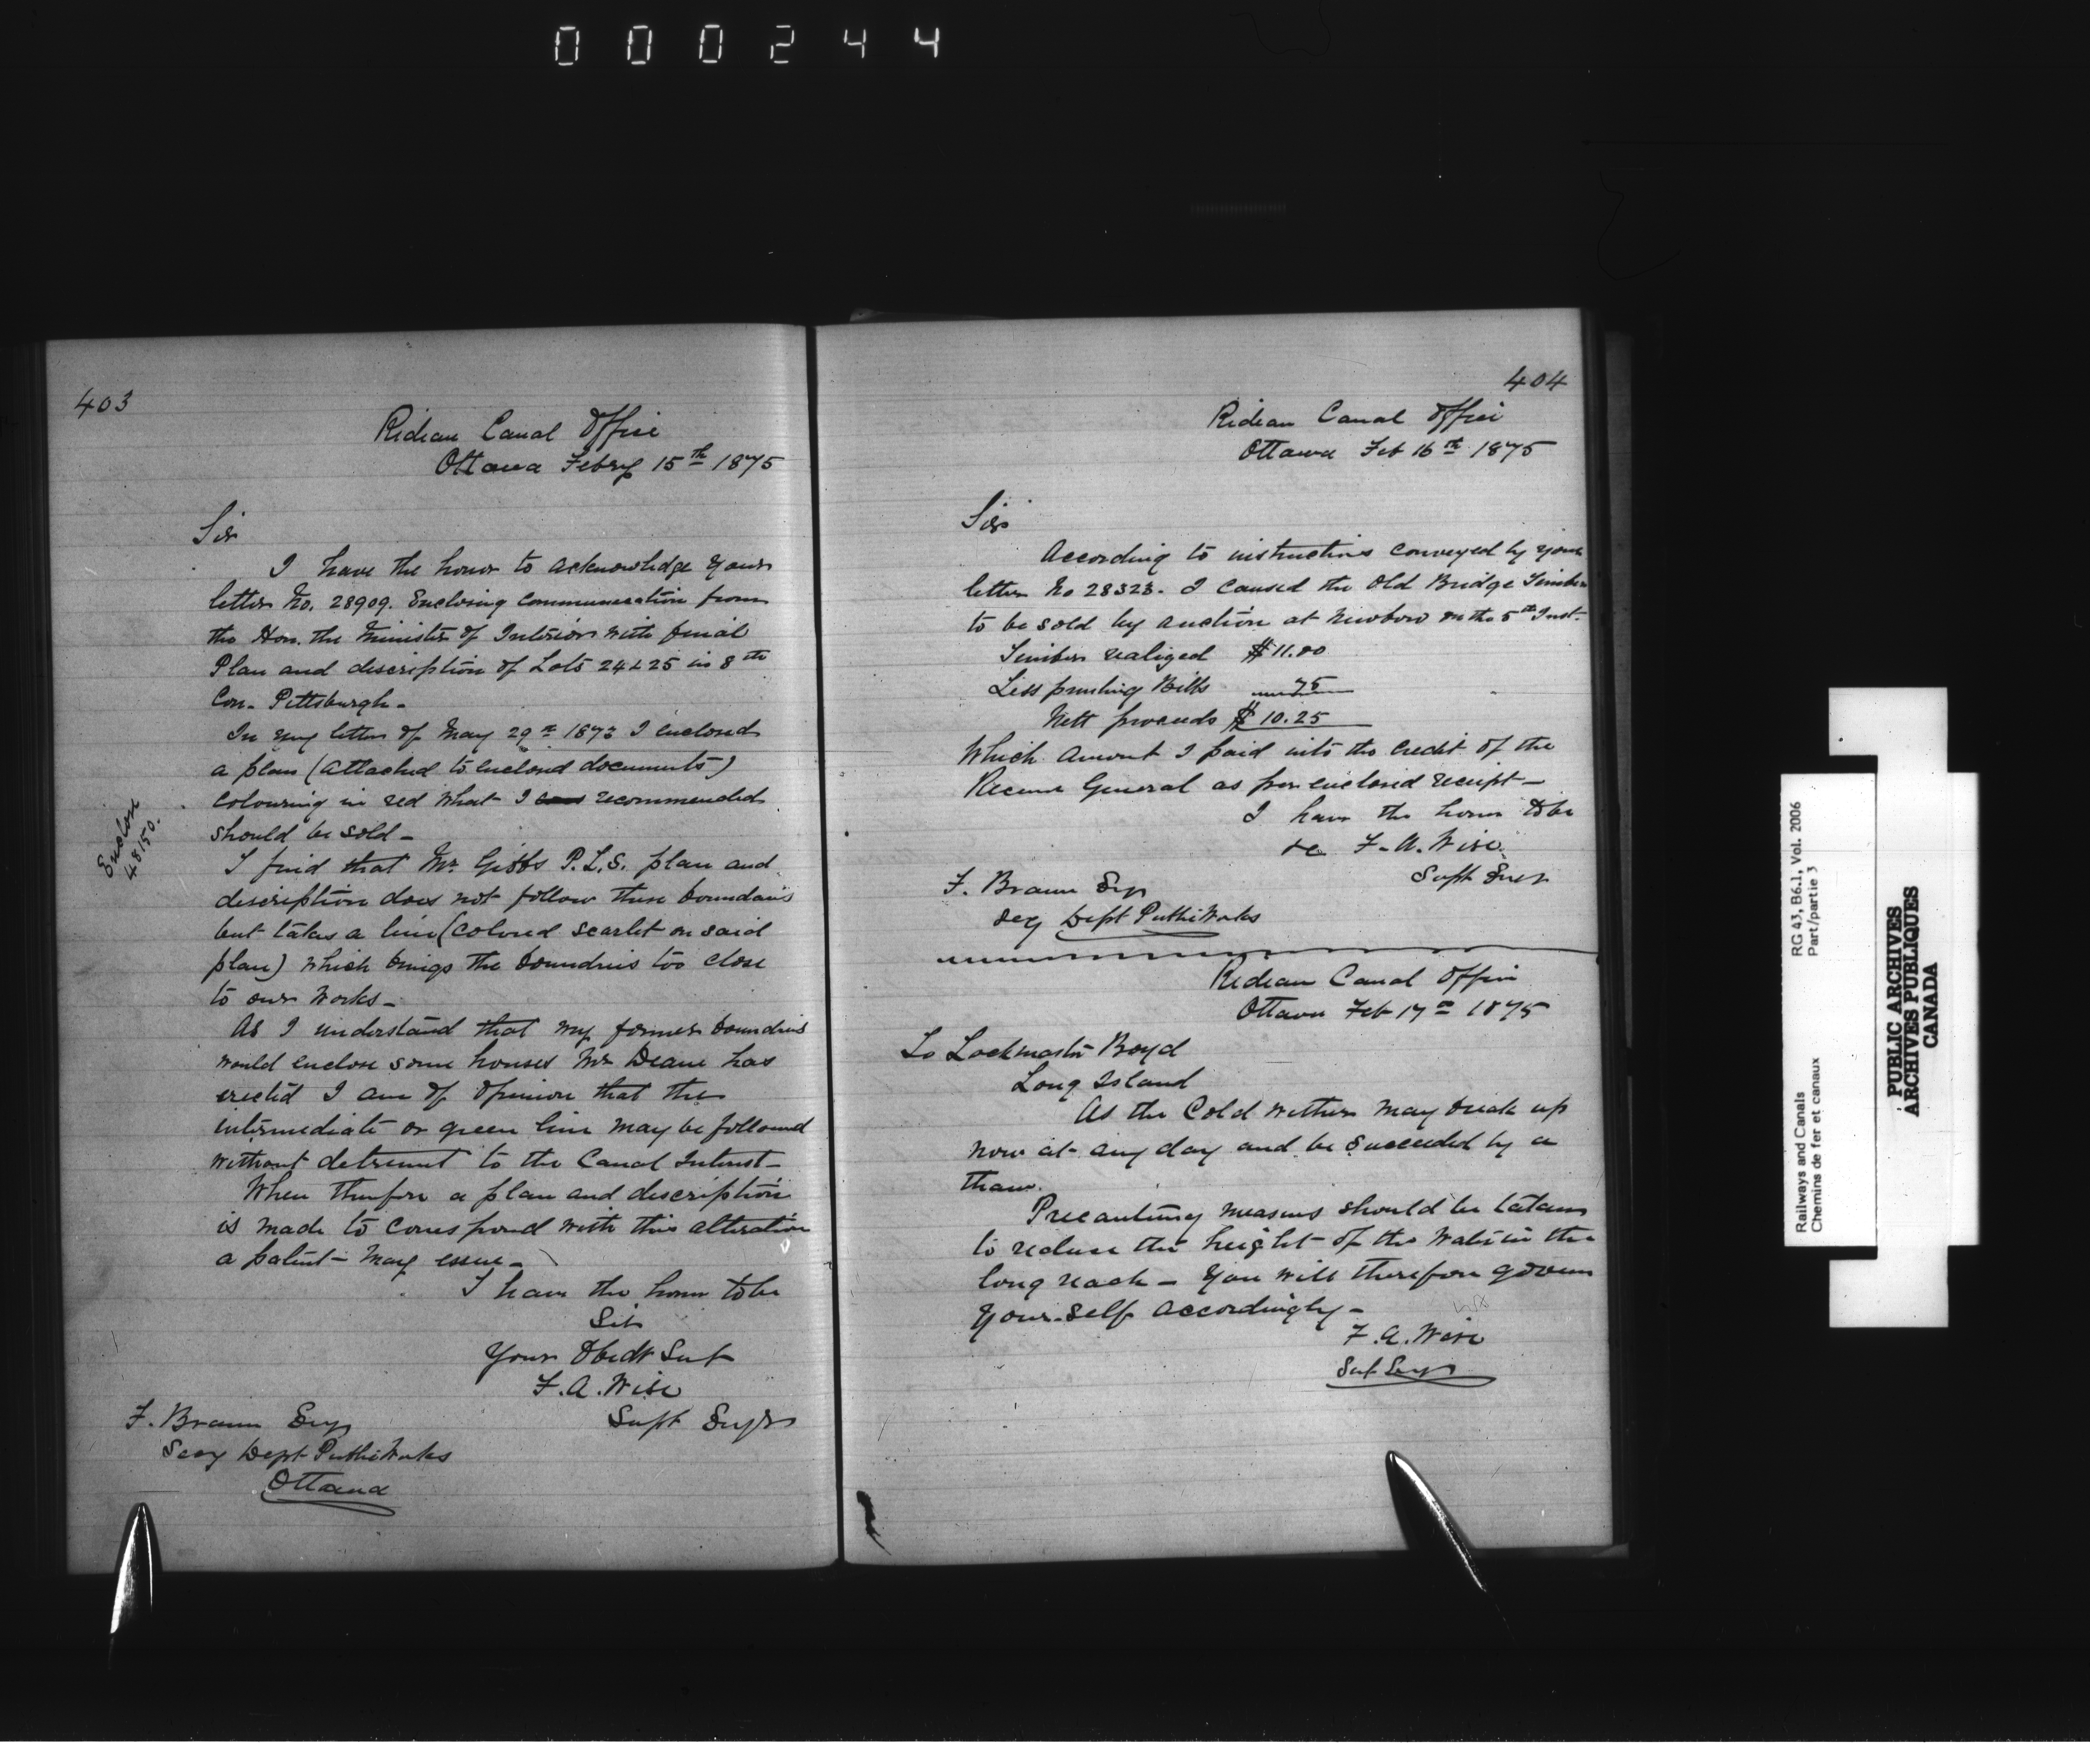 000244
403
Rideau Canal Office
Ottawa Febry 15th 1875
Sir
I have the honor to acknowledge your
letter No. 28909. Enclosing communication from
the Hon. the Minister of Interior with
Plan and description of Lots 24 & 25 in 8th
Con. Pittsburgh-
In my letter of May 29th 1873 I enclosed
a plan (attached to enclosed documents)
colouring in red what I recommended
should be sold-
Enclose
48150.
I find that Mr Gibbs P.L.S. plan and
description does not follow these boundaries
but takes a line (colored scarlet on said
plan) which brings the boundries too close
to our works-
As I understand that my former boundries
would enclose some houses Mr Deane has
erected I am of opinion that the
intermediate or green line may be followed
without detriment to the Canal Interest-
When therefore a plan and description
is made to correspond with this alteration
a patent- may essue-
I have the honor to be
Sir
Your Obedt Svt
F. A. Wise
Supt Engr
F. Braun Esq
Secy Dept Public Works
Ottawa
404
Rideau Canal Office
Ottawa Feb 16th 1875
Sir
According to instructions conveyed by your
letter No 28323. I caused the Old Bridge Timber
to be sold by auction at Newboro on the 5th Inst.
Timber realized $11.00
Less printing Bills 75
Nett proceeds $10.25
Which amount I paid into the credit of the
Receiver General as per enclosed receipt-
I have the honor to be
&c F. A. Wise
Supt Engr
F. Braun Esq
Secy Dept Public Works
Rideau Canal Office
Ottawa Feb 17th 1875
To Lockmaster Boyd
Long Island
As the Cold wether may break up
now at any day and be succeeded by a
thaw.
Precautiony measures should be taken
to reduce the height of the water in the
long reach- You will therefore govern
yourself accordingly-
F. A. Wise
Supt Engr
Railways and Canals
Chemins de fer et canaux
RG 43, B6.1, Vol. 2006
Part/partie 3
PUBLIC ARCHIVES
ARCHIVES PUBLIQUES
CANADA